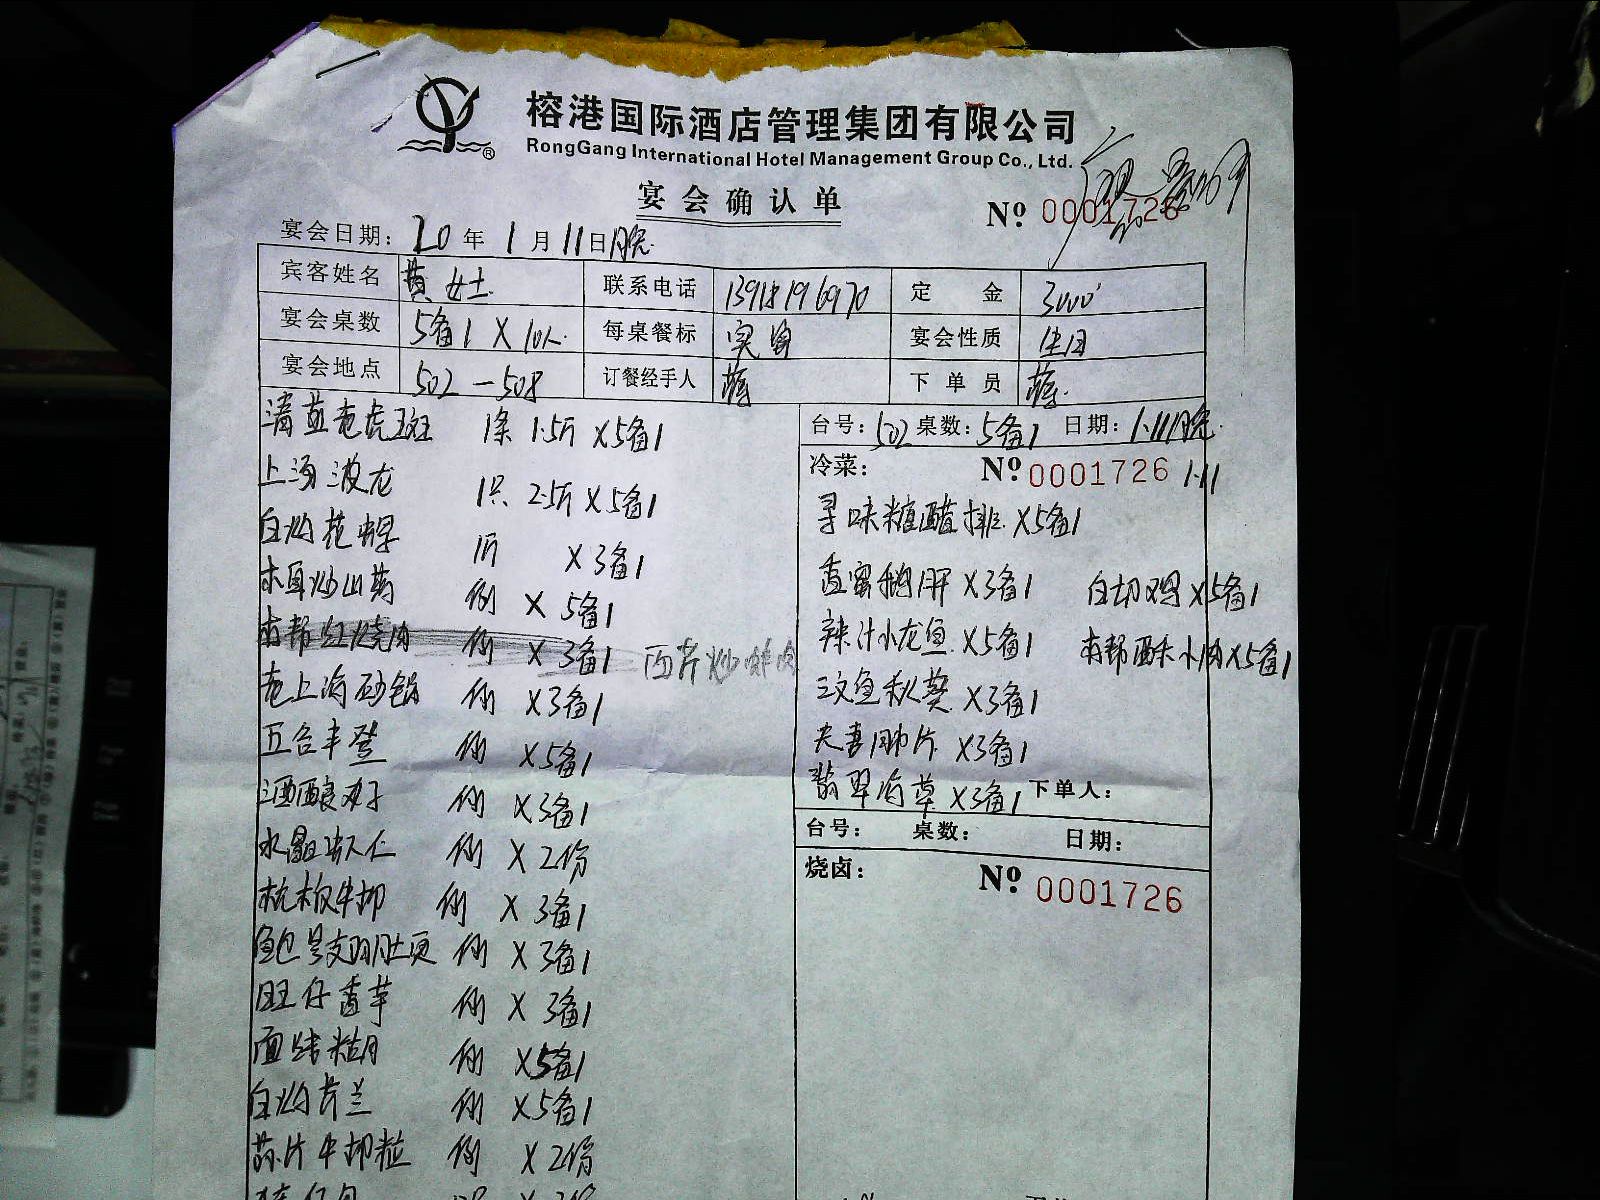 榕港国际酒店管理集团有限公司
RongGang International Hotel Management Group Co., Ltd.
宴会确认单
№ 0001726
宴会日期: 20年1月11日晚
宾客姓名 黄女士 联系电话 13918196970 定金 3000
宴会桌数 5备1×10人 每桌餐标 实单 宴会性质
宴会地点 502-508 订餐经手人 下单员
清蒸老虎斑 1条 1.5斤 ×5备1
上汤波龙 1只 2.5斤 ×5备1
白灼花螺 1斤 ×3备1
木耳炒山药 例 ×5备1
本帮红烧肉 例 ×3备1 西芹炒
老上海砂锅 例 ×3备1
五谷丰登 例 ×5备1
酒酿丸子 例 ×3备1
水晶虾仁 例 ×2份
杭椒牛柳 例 ×3备1
鲍汁 例 ×3备1
旺仔香芋 例 ×3备1
面结糊 例 ×5备1
白灼芥兰 例 ×5备1
蒜片牛柳粒 例 ×2份
台号: 502 桌数: 5备1 日期: 1.11晚
冷菜: № 0001726 1.11
寻味糖醋排 ×5备1
香蜜鹅肝 ×3备1 白切鸡 ×5备1
辣汁小龙鱼 ×5备1 本帮酥小肉 ×5备1
三文鱼秋葵 ×3备1
夫妻肺片 ×3备1
翡翠海草 ×3备1 下单人:
台号: 桌数: 日期:
烧卤: № 0001726